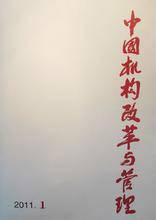 中国机构改革与管理
2011.1